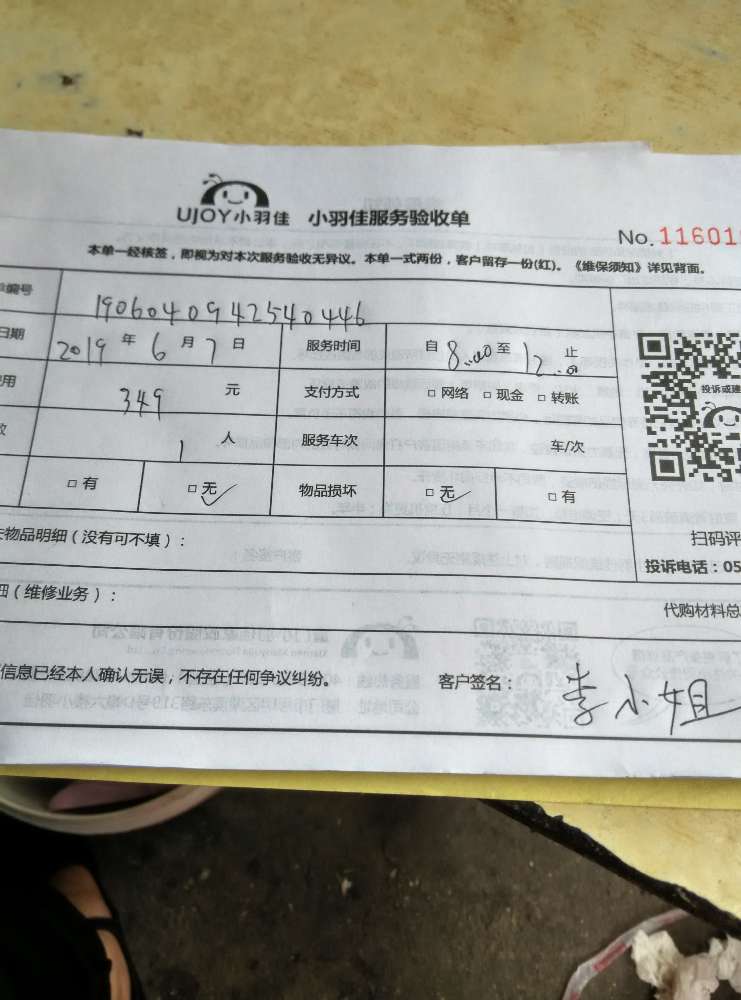 UJOY小羽佳 小羽佳服务验收单
No. 11601
本单一经核签，即视为对本次服务验收无异议。本单一式两份，客户留存一份(红)。《维保须知》详见背面。
编号 1906040942540446
日期 2019 年 6 月 7 日 服务时间 自 8:00 至 12:00 止
用 349 元 支付方式 □ 网络 □ 现金 □ 转账
数 1 人 服务车次 车/次
□ 有 □ 无 ✓ 物品损坏 □ 无 ✓ □ 有
投诉或建
扫码评
投诉电话：05
物品明细（没有可不填）：
细（维修业务）：
代购材料总
信息已经本人确认无误，不存在任何争议纠纷。 客户签名： 李小姐